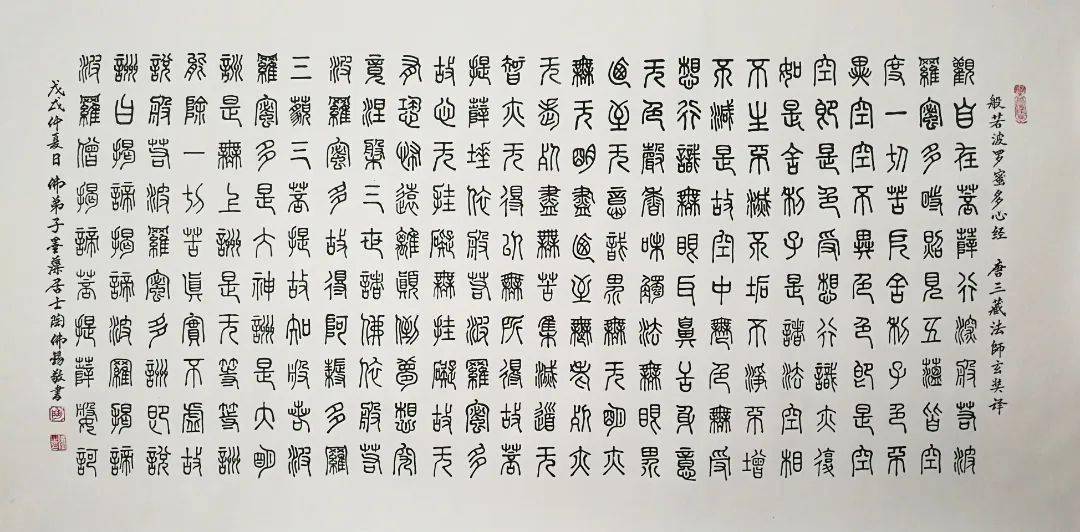 般若波罗蜜多心经 唐三藏法師玄奘译
觀自在菩薩行深般若波
羅蜜多時照見五蘊皆空
度一切苦厄舍利子色不
異空空不異色色即是空
空即是色受想行識亦復
如是舍利子是諸法空相
不生不滅不垢不淨不增
不減是故空中無色無受
想行識無眼耳鼻舌身意
无色聲香味觸法無眼界
乃至无意識界無无明亦
無无明盡乃至無老死亦
无老死盡無苦集滅道无
智亦无得以無所得故菩
提薩埵依般若波羅蜜多
故心无挂礙無挂礙故无
有恐怖遠離顛倒夢想究
竟涅槃三世諸佛依般若
波羅蜜多故得阿耨多羅
三藐三菩提故知般若波
羅蜜多是大神詶是大明
詶是無上詶是无等等詶
能除一切苦眞實不虛故
說般若波羅蜜多詶即說
詶曰揭諦揭諦波羅揭諦
波羅僧揭諦菩提薩婆訶
戊戌仲夏日 佛弟子墨居士陶佛錫敬書